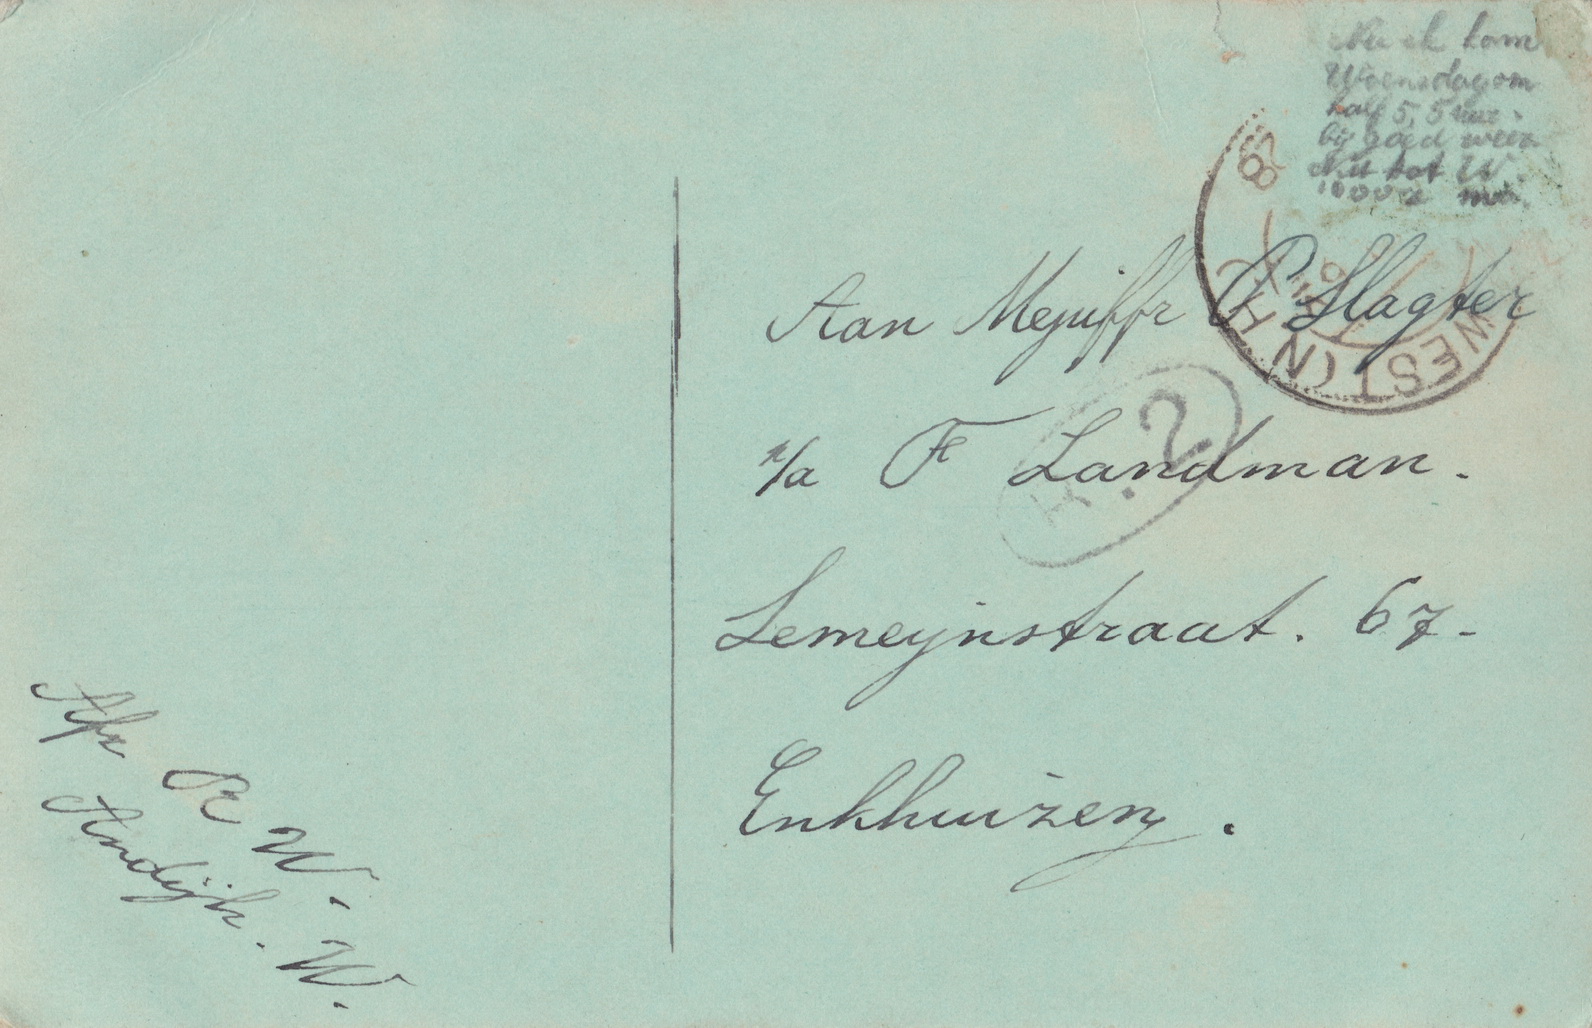 ik kom
Woensdag om
half 5, 5 uur.
bij goed weer
tot W.
Aan Mejuffr P Slagter
p/a F Landman.
Lemeynstraat. 67.
Enkhuizen.
Afz P W.
Andijk. W.
WEST (N. H.)
H. 2